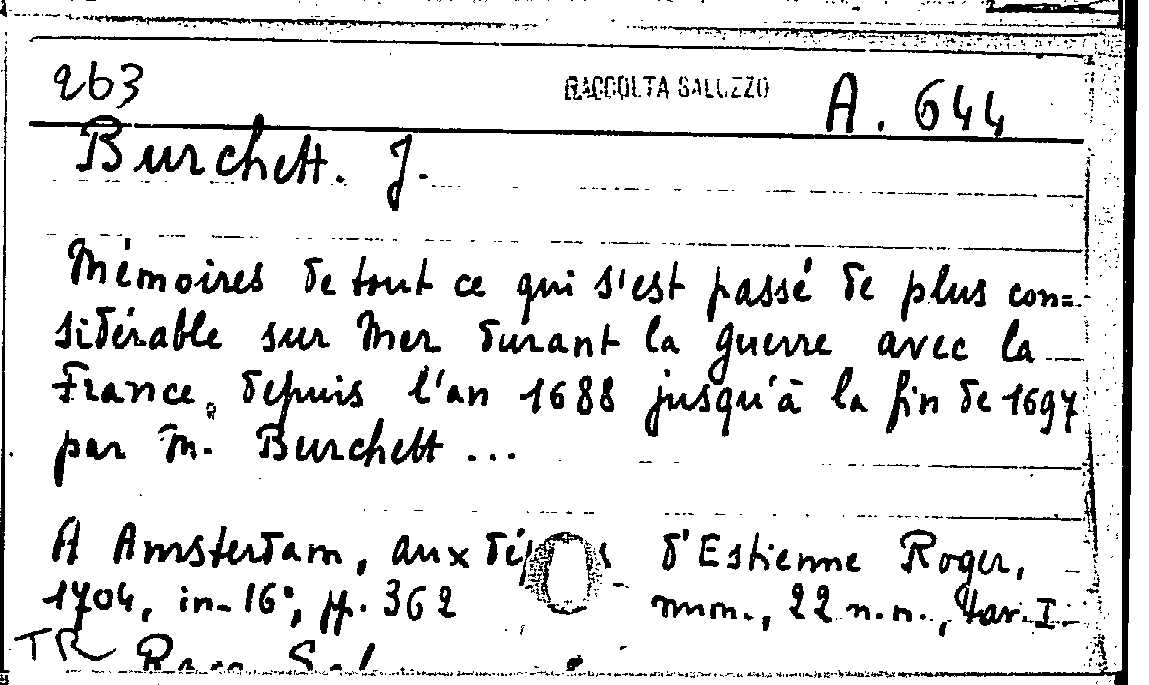 263 RACCOLTA SALUZZO A. 644
Burchett. J.
Mémoires de tout ce qui s'est passé de plus con=
sidérable sur Mer durant la guerre avec la
France, depuis l'an 1688 jusqu'à la fin de 1697
par M. Burchett ...
A Amsterdam, aux d'Estienne Roger,
1704, in-16°, pp. 362 num., 22 n.n., tav. I.
TR